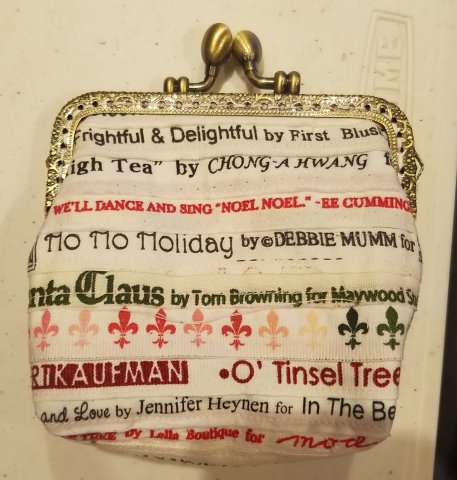 Frightful & Delightful by First Blush
igh Tea" by CHONG-A HWANG
WE'LL DANCE AND SING "NOEL NOEL." -EE CUMMING
Ho Ho Holiday by © DEBBIE MUMM for
nta Claus by Tom Browning for Maywood St
RI KAUFMAN •O' Tinsel Tree
and Love by Jennifer Heynen for In The Be
by Lella Boutique for moda